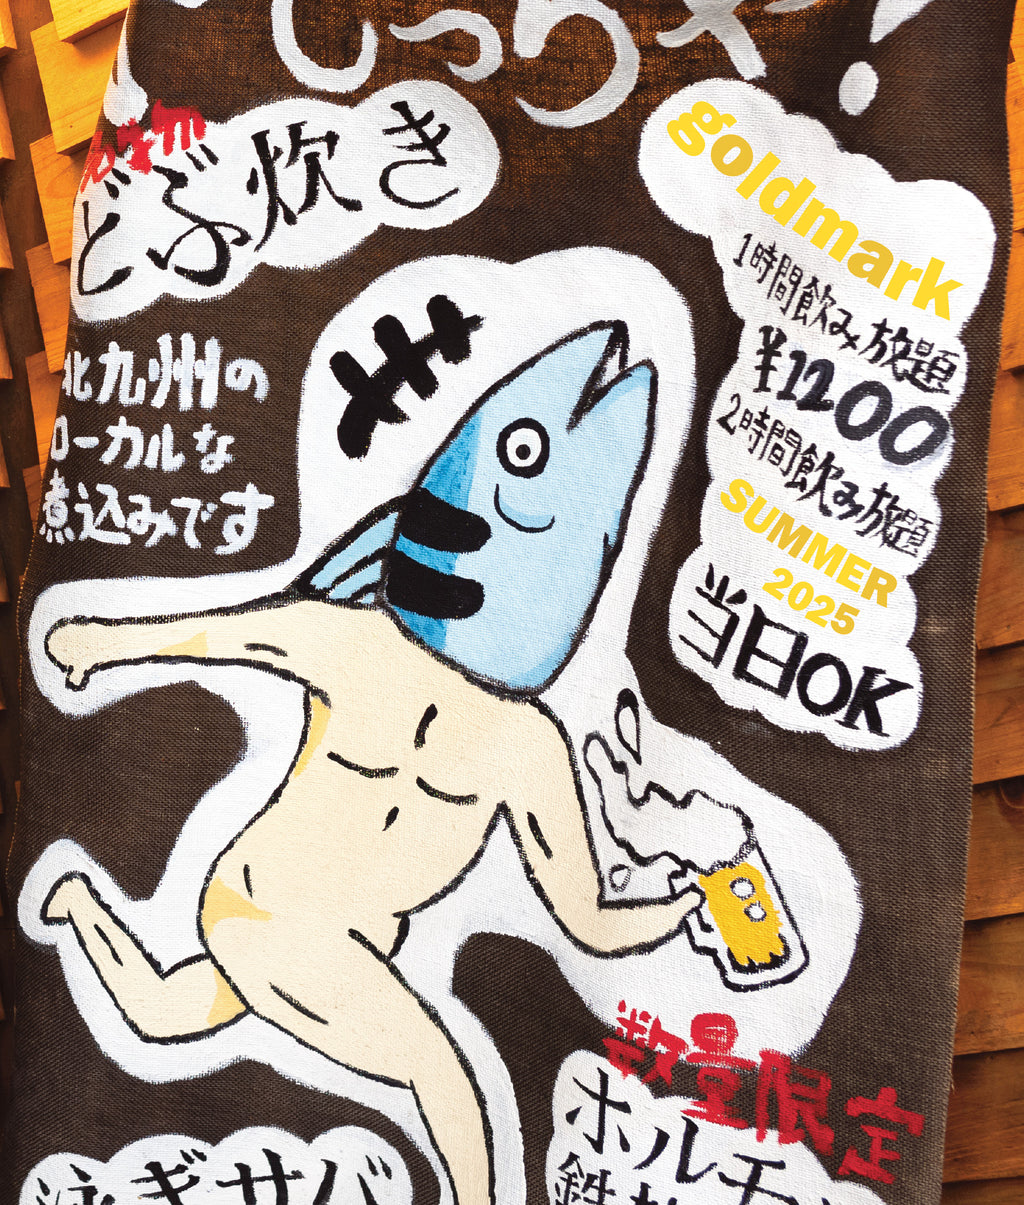 しっちゃ!
名物
どぶ炊き
北九州の
ローカルな
煮込みです
goldmark
1時間飲み放題
¥1200
2時間飲み放題
SUMMER
2025
当日OK
数量限定
ホルモン
泳ギサバ